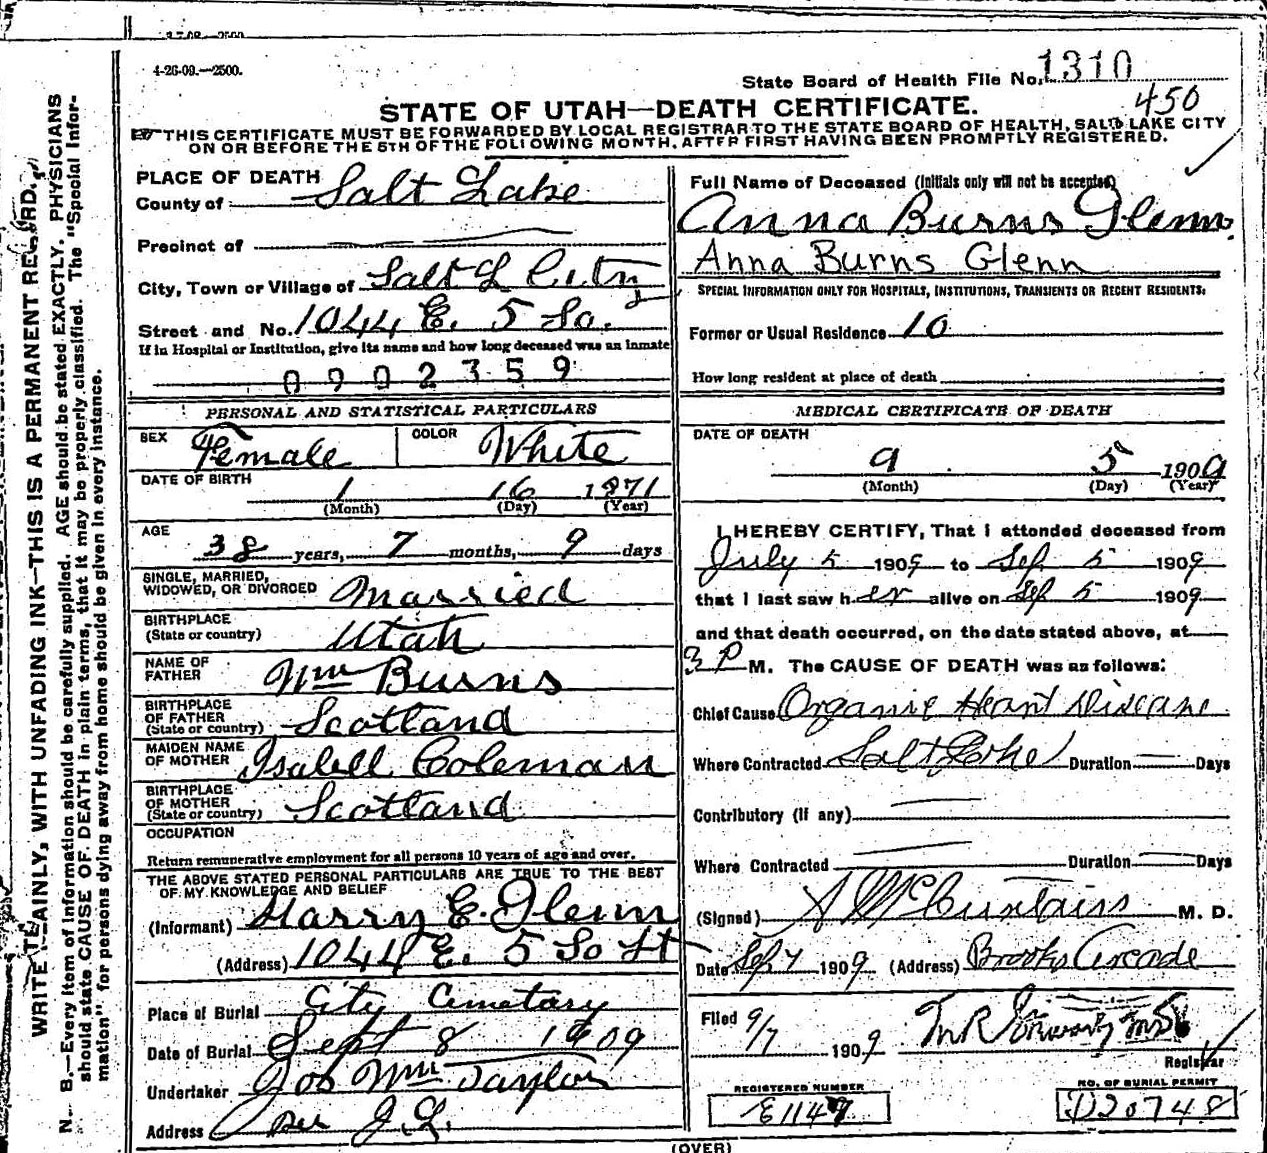 4-26-09.—2500.
State Board of Health File No. 1310
450
STATE OF UTAH—DEATH CERTIFICATE.
THIS CERTIFICATE MUST BE FORWARDED BY LOCAL REGISTRAR TO THE STATE BOARD OF HEALTH, SALT LAKE CITY
ON OR BEFORE THE 5TH OF THE FOLLOWING MONTH, AFTER FIRST HAVING BEEN PROMPTLY REGISTERED.
WRITE PLAINLY, WITH UNFADING INK—THIS IS A PERMANENT RECORD.
N. B.—Every item of information should be carefully supplied. AGE should be stated EXACTLY. PHYSICIANS
should state CAUSE OF DEATH in plain terms, that it may be properly classified. The "Special Infor-
mation" for persons dying away from home should be given in every instance.
PLACE OF DEATH
County of Salt Lake
Precinct of
City, Town or Village of Salt L City
Street and No. 1044 E. 5 So.
If in Hospital or Institution, give its name and how long deceased was an inmate
0902359
PERSONAL AND STATISTICAL PARTICULARS
SEX Female COLOR White
DATE OF BIRTH 1 16 1871
(Month) (Day) (Year)
AGE 38 years, 7 months, 9 days
SINGLE, MARRIED,
WIDOWED, OR DIVORCED Married
BIRTHPLACE
(State or country) Utah
NAME OF
FATHER Wm Burns
BIRTHPLACE
OF FATHER
(State or country) Scotland
MAIDEN NAME
OF MOTHER Isabell Coleman
BIRTHPLACE
OF MOTHER
(State or country) Scotland
OCCUPATION
Return remunerative employment for all persons 10 years of age and over.
THE ABOVE STATED PERSONAL PARTICULARS ARE TRUE TO THE BEST
OF MY KNOWLEDGE AND BELIEF
(Informant) Harry E. Glenn
(Address) 1044 E. 5 So St
Place of Burial City Cemetary
Date of Burial Sept 8 1909
Undertaker Jos Wm Taylor
Address per J. L.
Full Name of Deceased (Initials only will not be accepted)
Anna Burns Glenn.
Anna Burns Glenn
SPECIAL INFORMATION ONLY FOR HOSPITALS, INSTITUTIONS, TRANSIENTS OR RECENT RESIDENTS.
Former or Usual Residence 10
How long resident at place of death
MEDICAL CERTIFICATE OF DEATH
DATE OF DEATH
9 5 1909
(Month) (Day) (Year)
I HEREBY CERTIFY, That I attended deceased from
July 5 1909 to Sep 5 1909
that I last saw her alive on Sep 5 1909
and that death occurred, on the date stated above, at
3 P M. The CAUSE OF DEATH was as follows:
Chief Cause Organic Heart Disease
Where Contracted Salt Lake Duration Days
Contributory (if any)
Where Contracted Duration Days
(Signed) M. D.
Date Sep 7 1909 (Address) Brooks Arcade
Filed 9/7 1909
Registrar
REGISTERED NUMBER
E1147
NO. OF BURIAL PERMIT
D20748
(OVER)